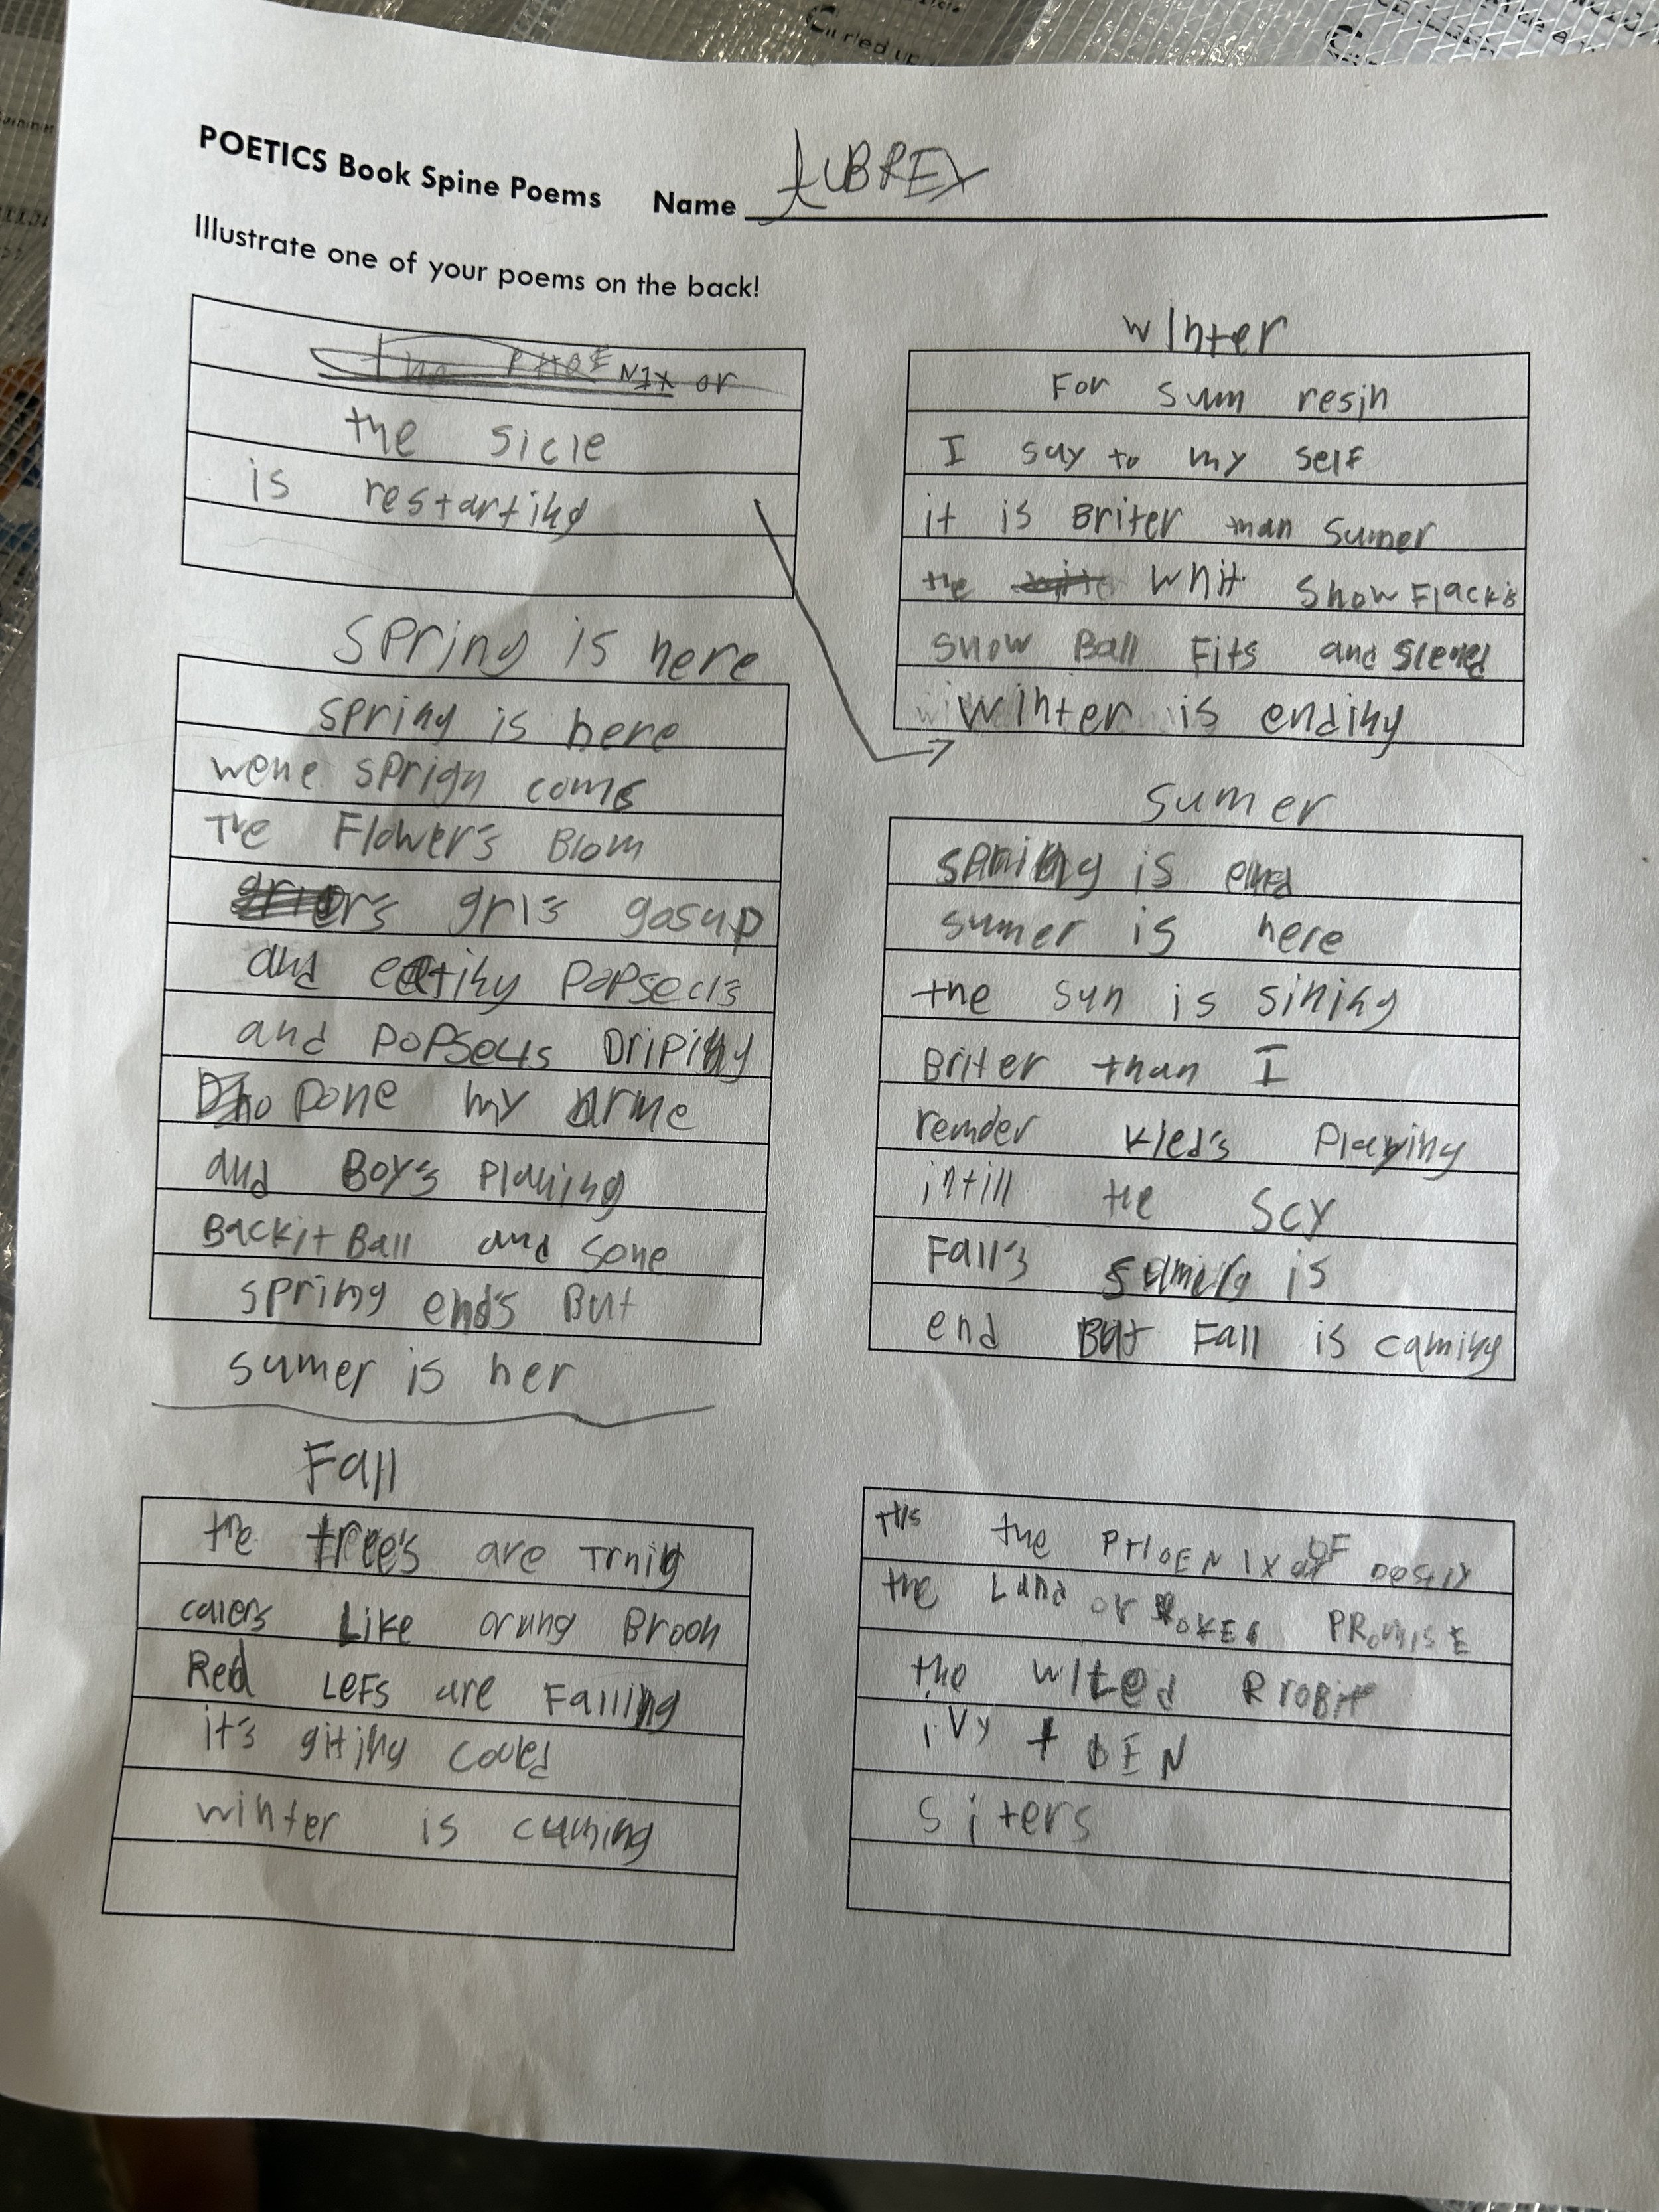 POETICS Book Spine Poems Name AUBREY
Illustrate one of your poems on the back!
the PHOENIX or
the sicle
is restarting
spring is here
spring is here
wene sprign coms
THe Flower's Blom
grl's gosup
and eating Popsecls
and popsecls Driping
Done my arme
and Boy's Playing
Backit Ball and sone
spring end's But
sumer is her
Fall
the tree's are Trnig
calers Like orung Broon
Red LeFs are Falling
it's giting coued
winter is cuming
winter
For sum resin
I say to my self
it is Briter than Sumer
the whit snow Flackis
snow Ball Fits and
winter is ending
sumer
spring is end
sumer is here
the sun is sining
Briter than I
remder kied's Playing
intill the scy
Fall's is
end But Fall is caming
the PHOENIX OF
the Land of PROMISE
the
ivy + BEN
siters